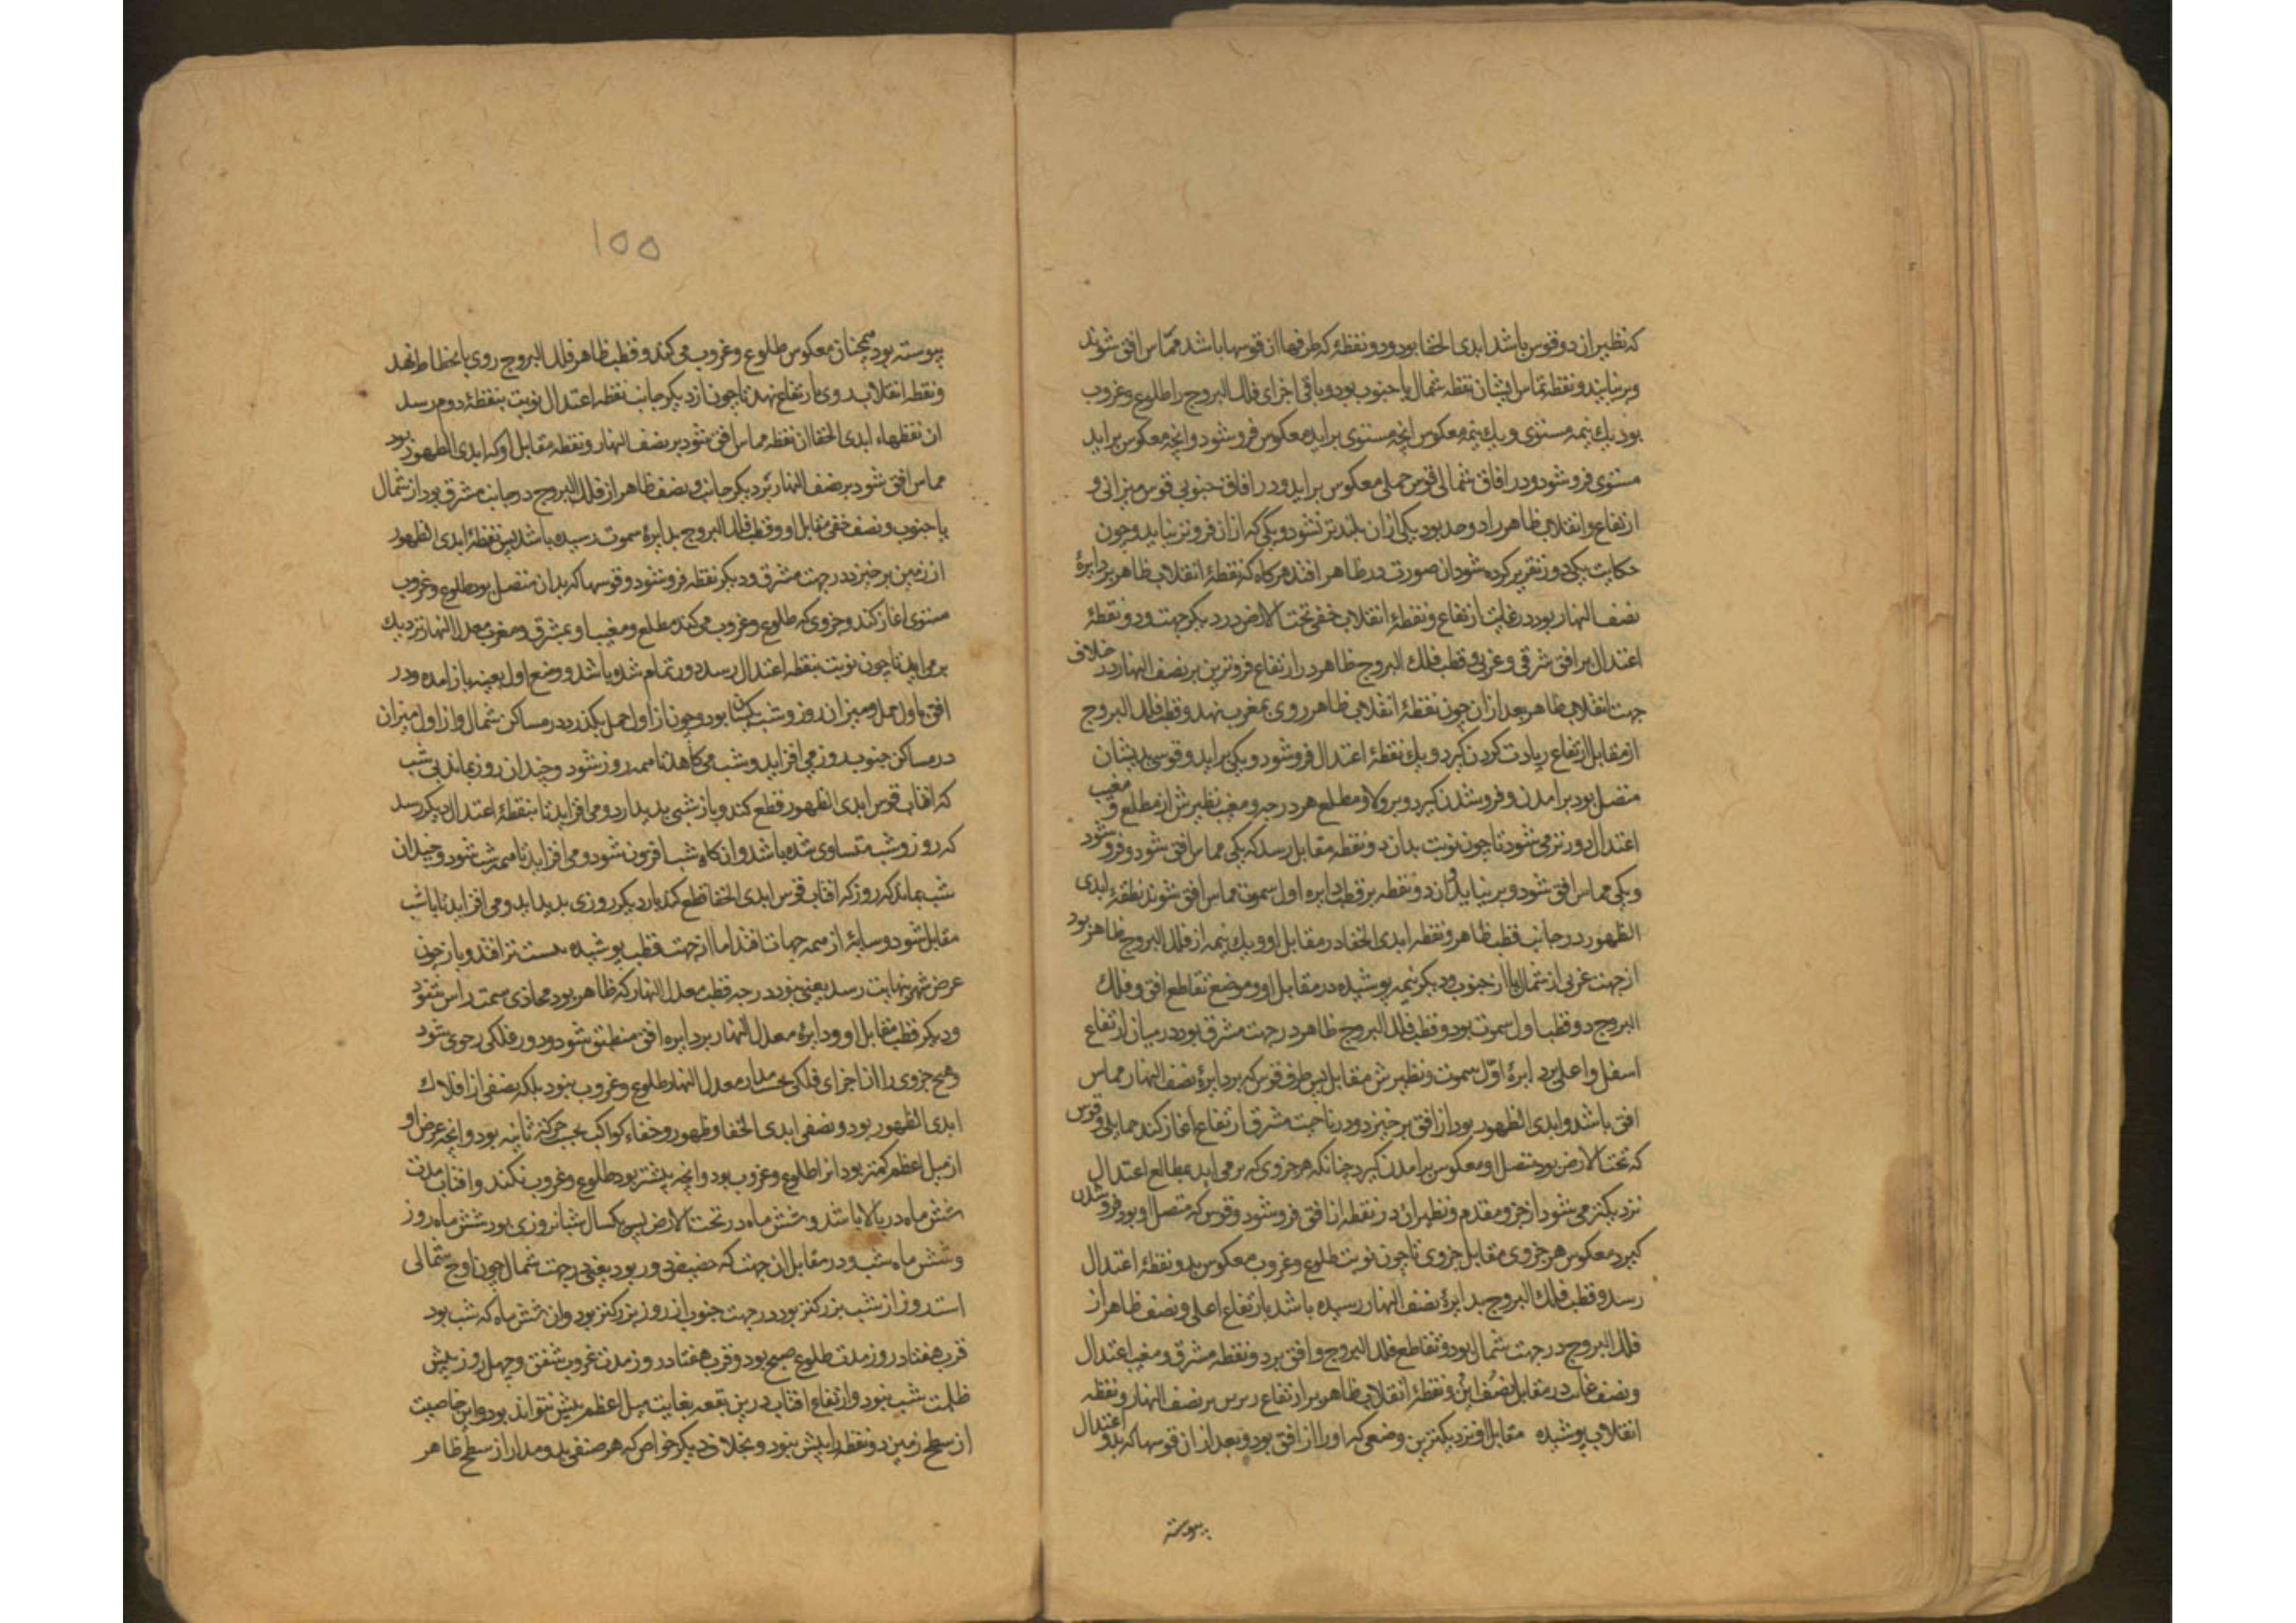 که نظیر ان دو قوس باشد ابدی الخفا بود و دو نقطهٔ که طرفها ان قوسها باشد مماس افق شوند
و بر نیایند و نقطه تماس ایشان نقطه شمال یا جنوب بود و باقی اجزای فلک البروج را طلوع و غروب
بود یک نیمه مستوی و یک نیمه معکوس انچه مستوی براید معکوس فرو شود و انچه معکوس براید
مستوی فرو شود و در افاق شمالی قوس حملی معکوس براید و در افاق جنوبی قوس میزانی و
ارتفاع و انقلاب ظاهر را دو حد بود یکی از ان بلندتر نشود و یکی که از ان فروتر نیاید و چون
حکایت یکدور تقریر کرده شود ان صورت در ظاهر افتد هرگاه که نقطهٔ انقلاب ظاهر بر دایرهٔ
نصف النهار بود در غایت ارتفاع و نقطهٔ انقلاب خفی تحت الارض در دیکر جهت و دو نقطهٔ
اعتدال بر افق شرقی و غربی و قطب فلک البروج ظاهر در ارتفاع فروترین بر نصف النهار در خلاف
جهت انقلاب ظاهر بعد از ان چون نقطهٔ انقلاب ظاهر روی بمغرب نهد و قطب فلک البروج
از مقابل ارتفاع زیادت کردن کیرد و یک نقطهٔ اعتدال فرو شود و یکی براید و قوسی بدیشان
متصل بود برامدن و فرو شدن کیرد و بر ولا و مطلع هر درجه و مغیب نظیرش از مطلع و مغیب
اعتدال دورتر می شود تا چون نوبت بدان دو نقطه مقابل رسد که یکی مماس افق شود و فرو شود
و یکی مماس افق شود و بر نیاید و ان دو نقطه بر قطب دایره اول سموت مماس افق شوند نقطهٔ ابدی
الظهور در جانب قطب ظاهر و نقطه ابدی الخفا در مقابل او و یک نیمه از فلک البروج ظاهر بود
از جهت غربی از شمال یا از جنوب و دیکر نیمه پوشیده در مقابل او و موضع تقاطع افق و فلک
البروج دو قطب اول سموت بود و قطب فلک البروج ظاهر در جهت مشرق بود در میان ارتفاع
اسفل و اعلی بر دایرهٔ اول سموت و نظیرش مقابل پس طرف قوس که بر دایرهٔ نصف النهار مماس
افق باشد و ابدی الظهور بود از افق بر خیزد و در ناحیت مشرق ارتفاع اغاز کند حمایلی و قوس
که تحت الارض بود متصل او معکوس برامدن کیرد چنانکه هر جزوی که بر می اید بمطالع اعتدال
نزدیکتر می شود از جزو مقدم و نظیر ان در نقطه از افق فرو شود و قوس که متصل او بود فرو شدن
کیرد معکوس هر جزوی مقابل جزوی تا چون نوبت طلوع و غروب معکوس بدو نقطهٔ اعتدال
رسد و قطب فلک البروج بدایرهٔ نصف النهار رسیده باشد بارتفاع اعلی و نصف ظاهر از
فلک البروج در جهت شمال بود و تقاطع فلک البروج و افق بر دو نقطه مشرق و مغیب اعتدال
و نصف غایب در مقابل نصف این و نقطهٔ انقلاب ظاهر بر ارتفاع بر نصف النهار و نقطه
انقلاب پوشیده مقابل او نزدیکترین وضعی که او را از افق بود و بعد از ان قوسها که بدو اعتدال
پیوسته
۱۵۵
پیوسته بود همچنان معکوس طلوع و غروب می کند و قطب ظاهر فلک البروج روی بانحطاط نهد
و نقطه انقلاب روی بارتفاع نهد تا چون از دیکر جانب نقطه اعتدال نوبت بنقطهٔ دوم رسد
ان نقطهاء ابدی الخفا ان نقطه مماس افق شود بر نصف النهار و نقطه مقابل او که ابدی الظهور بود
مماس افق شود بر نصف النهار بر دیکر جانب و نصف ظاهر از فلک البروج در جانب مشرق بود از شمال
یا جنوب و نصف خفی مقابل او و قطب فلک البروج بدایرهٔ سموت رسیده باشد پس نقطهٔ ابدی الظهور
از زمین بر خیزد در جهت مشرق و دیکر نقطه فرو شود و قوسها که بدان متصل بود طلوع و غروب
مستوی اغاز کند و جزوی که طلوع و غروب می کند مطلع و مغیب او بمشرق و مغرب معدل النهار نزدیک
بر می اید تا چون نوبت بنقطه اعتدال رسد دور تمام شده باشد و وضع اول بعینه باز امده و در
افق باول حمل و میزان روز و شب یکسان بود و چون از اول حمل بکذرد در مساکن شمال و از اول میزان
در مساکن جنوب روز می افزاید و شب می کاهد تا همه روز شود و چندان روز بماند بی شب
که افتاب قوس ابدی الظهور قطع کند و باز شبی پدید ارد و می افزاید تا بنقطهٔ اعتدال دیکر رسد
که روز و شب متساوی شده باشد و انکاه شب افزون شود و می افزاید تا همه شب شود و چندان
شب بماند که روز که افتاب قوس ابدی الخفا قطع کند بار دیکر روزی پدید اید و می افزاید تا با شب
مقابل شود و سایهٔ از همه جهات افتد اما از جهت قطب پوشیده هست تر افتد و باز چون
عرض شهر بنهایت رسد یعنی بنود درجه قطب معدل النهار که ظاهر بود محاذی سمت راس شود
و دیکر قطب مقابل او و دایرهٔ معدل النهار بر دایره افق منطبق شود و دور فلکی رحوی شود
و هیچ جزوی را از اجزای فلکی بحسب مدار معدل النهار طلوع و غروب نبود بلکه نصفی از افلاک
ابدی الظهور بود و نصفی ابدی الخفا و ظهور و خفاء کواکب بحسب حرکت ثانیه بود و انچه عرض او
از میل اعظم کمتر بود انرا طلوع و غروب بود و انچه بیشتر بود طلوع و غروب نکند و افتاب مدت
شش ماه در بالا باشد و شش ماه در تحت الارض پس یکسال شبانروزی بود شش ماه روز
و شش ماه شب و در مقابل ان جهت که حضیض در و بود یعنی در جهت شمال چون اوج شمالی
است روز از شب بزرکتر بود در جهت جنوب از روز بزرکتر بود و ان شش ماه که شب بود
قرب هفتاد روز مدت طلوع صبح بود و قرب هفتاد روز مدت غروب شفق و چهل روز بیش
ظلمت شب نبود و ارتفاع افتاب درین بقعه بغایت میل اعظم بیش نتواند بود و این خاصیت
از سطح زمین دو نقطه را بیش نبود و بخلاف دیکر خواص که هر صنفی بدو مدار از سطح ظاهر